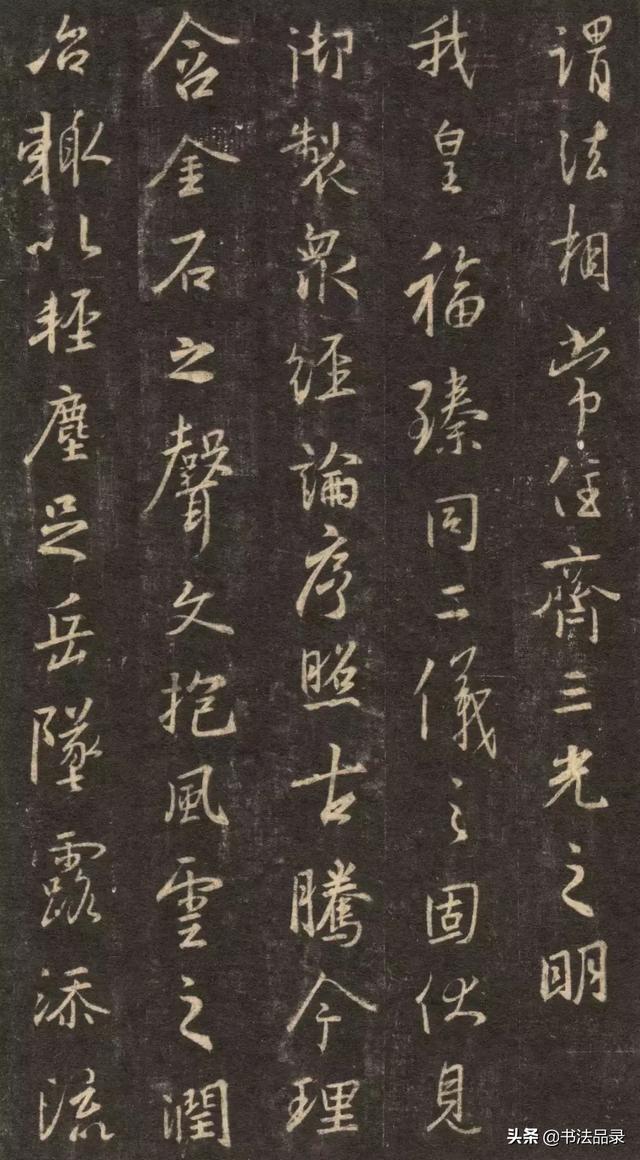 謂法相常住齊三光之明
我皇福臻同二儀之固伏見
御製衆經論序照古騰今理
含金石之聲文抱風雲之潤
治輙以輕塵足岳墜露添流
头条 @书法品录